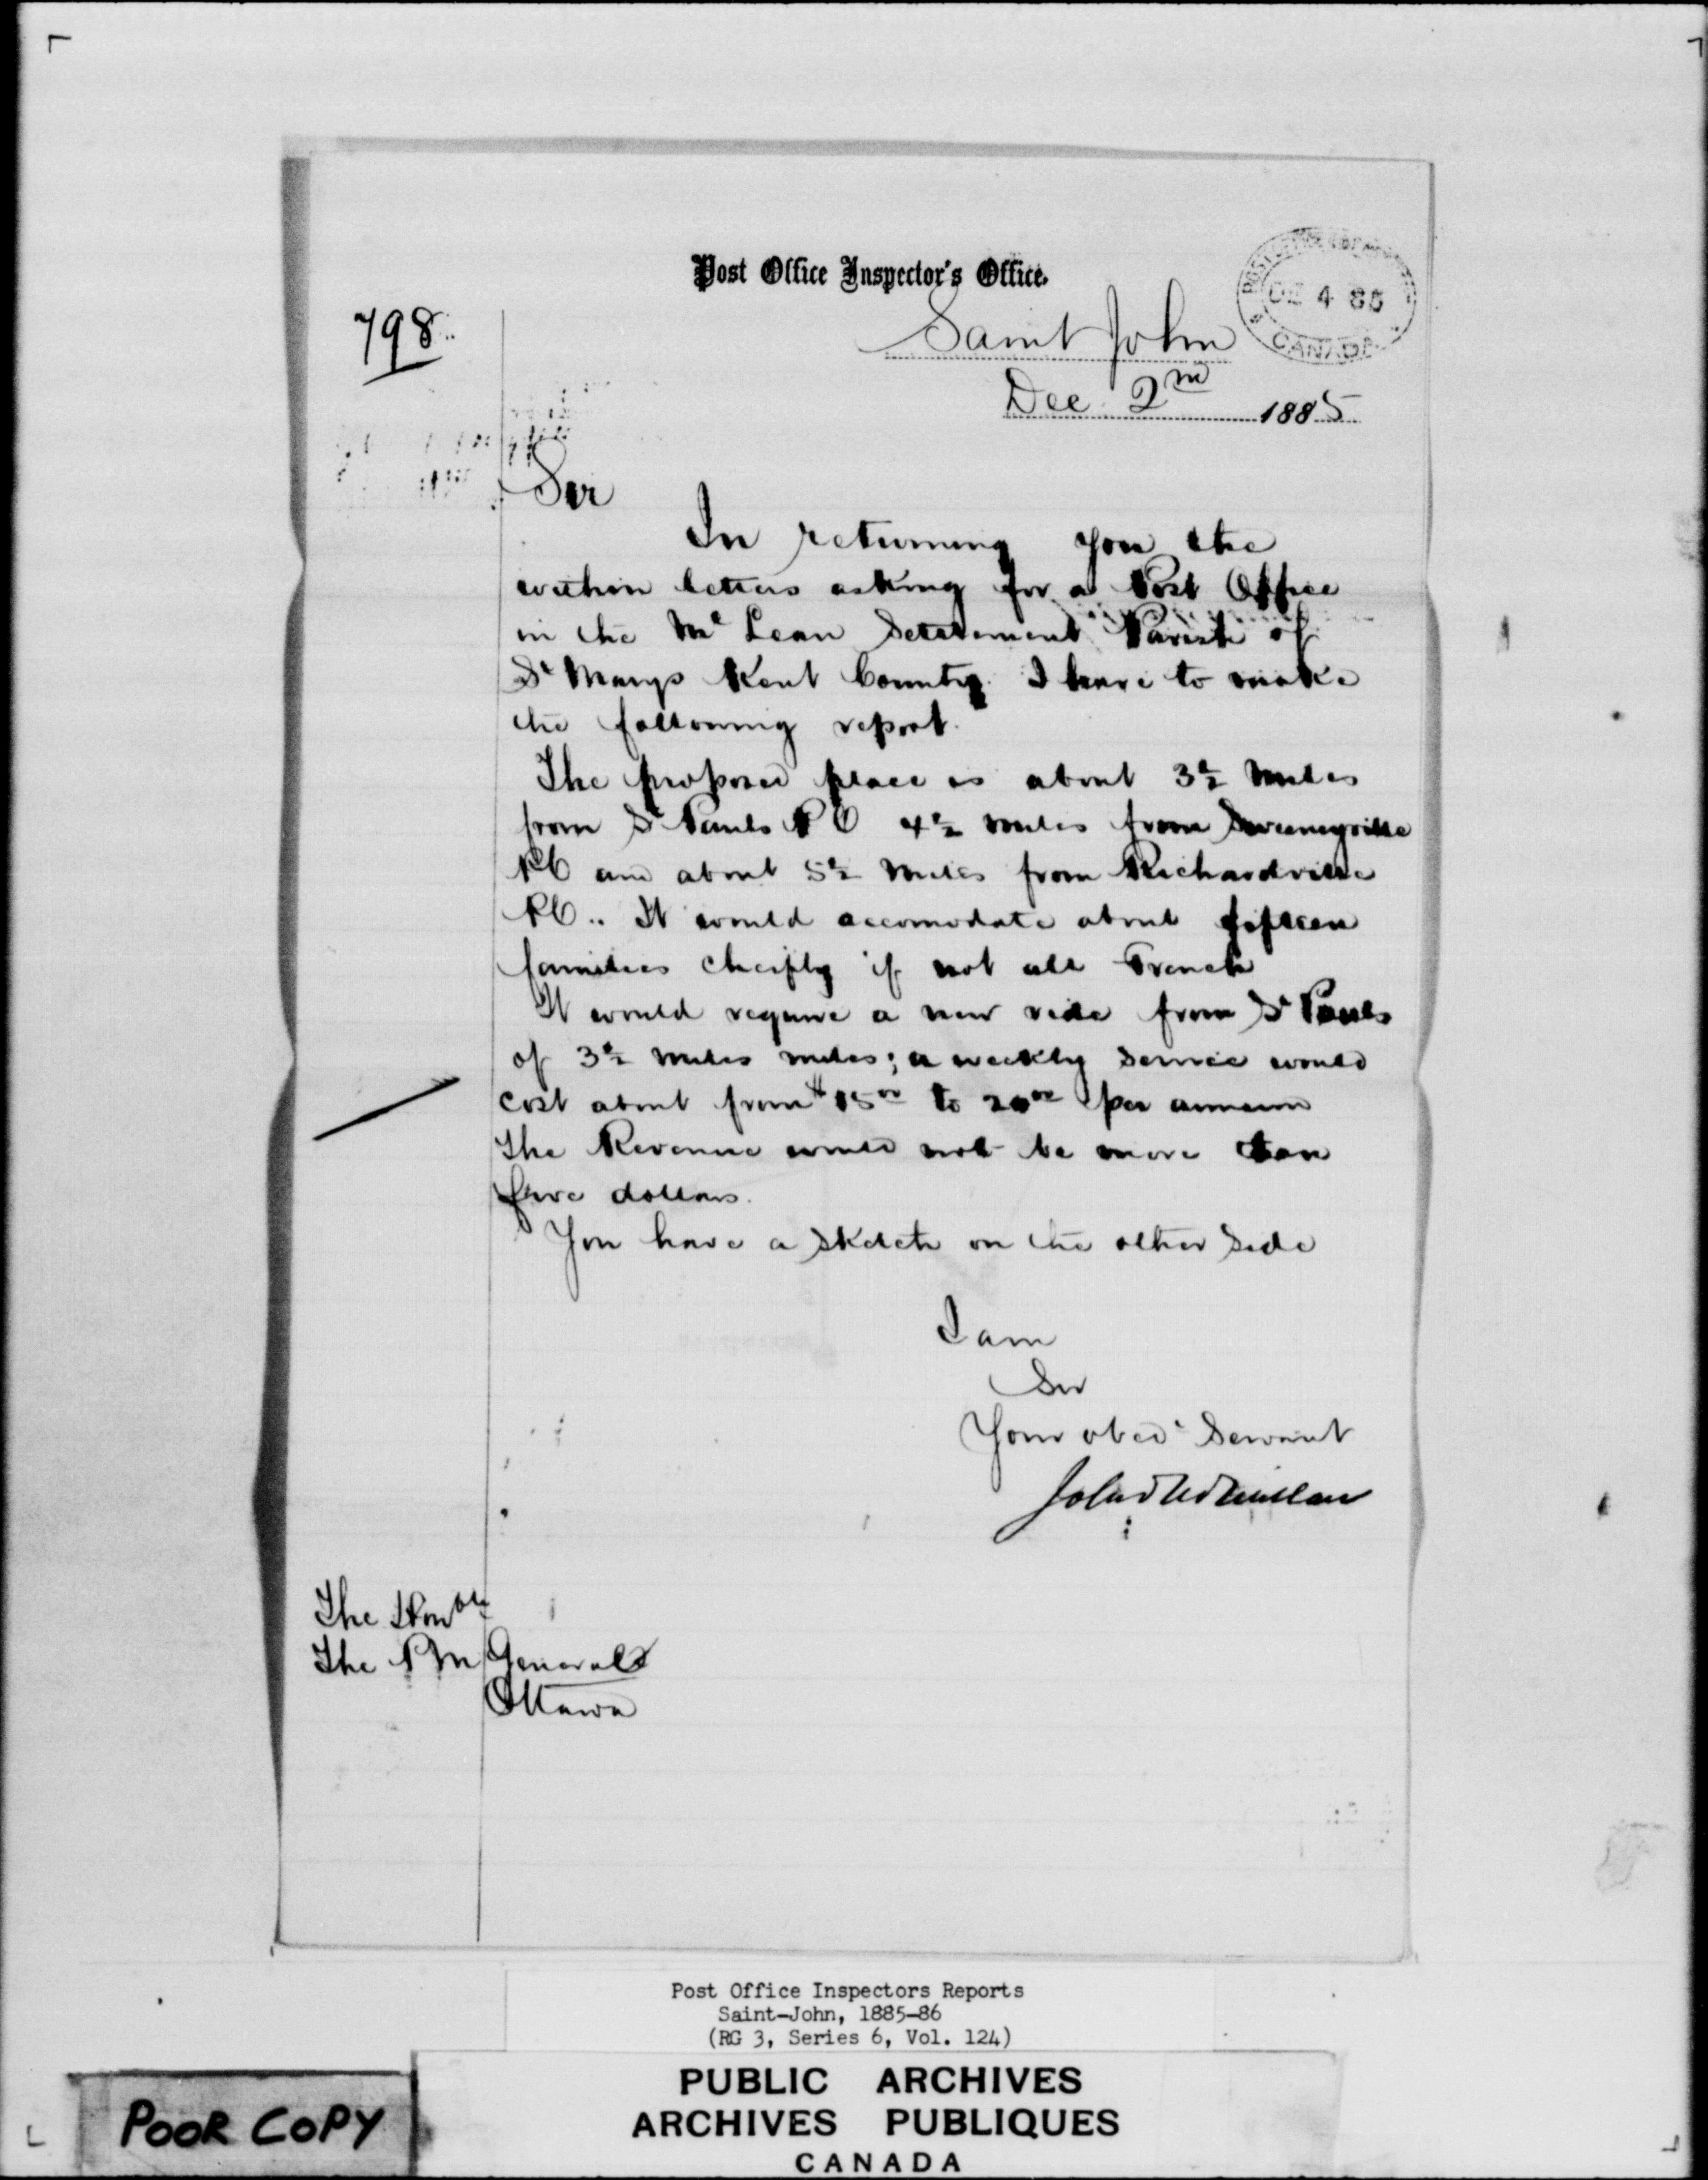 Post Office Inspector's Office.
POST OFFICE
DE 4 85
CANADA
798
Saint John
Dec 2nd 1885
Sir
In returning you the
within letters asking for a Post Office
in the Mc Lean Settlement Parish of
St Marys Kent County I have to make
the following report.
The proposed place is about 3½ miles
from St Pauls P O 4½ miles from Sweeneyville
P O and about 5½ miles from Richardville
P O.. It would accomodate about fifteen
families cheifly if not all French
It would require a new ride from St Pauls
of 3½ miles miles; a weekly service would
cost about from $15 00 to 20 00 per annum
The Revenue would not be more than
five dollars.
You have a sketch on the other side
I am
Sir
Your obed t Servant
John
The Honble
The P M General
Ottawa
Post Office Inspectors Reports
Saint-John, 1885-86
(RG 3, Series 6, Vol. 124)
PUBLIC ARCHIVES
ARCHIVES PUBLIQUES
CANADA
POOR COPY